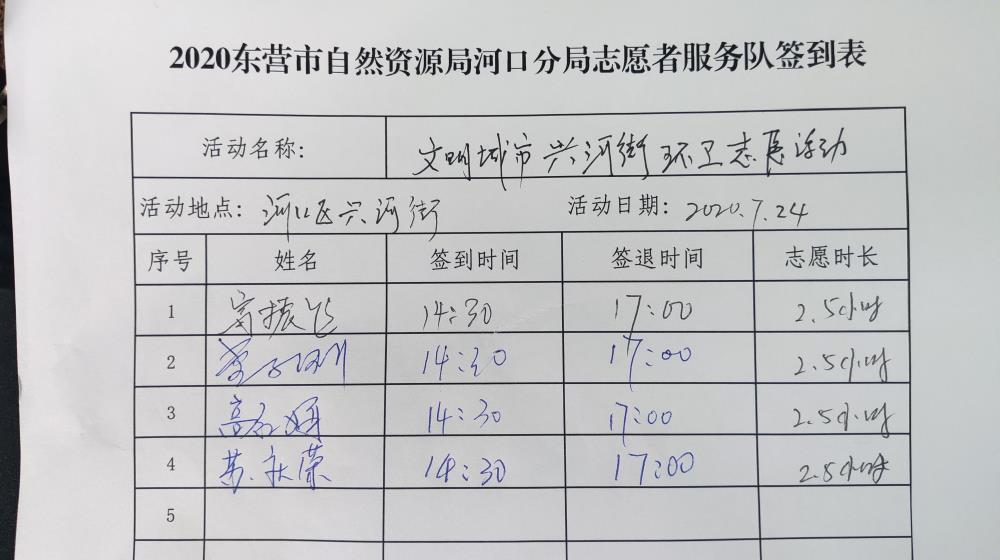 2020东营市自然资源局河口分局志愿者服务队签到表
活动名称: 文明城市兴河街环卫志愿活动
活动地点: 河口区兴河街 活动日期: 2020.7.24
序号 姓名 签到时间 签退时间 志愿时长
1 14:30 17:00 2.5小时
2 14:30 17:00 2.5小时
3 14:30 17:00 2.5小时
4 苏秋荣 14:30 17:00 2.5小时
5